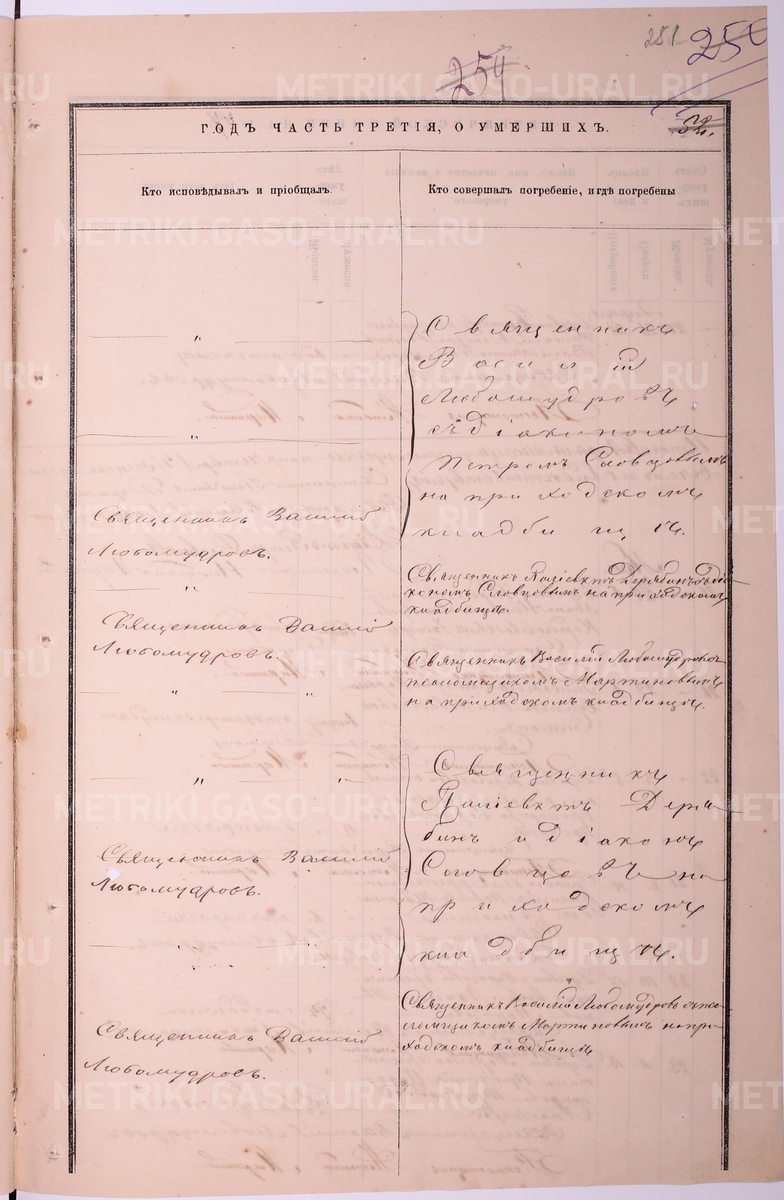 251
254
250
ГОДЪ ЧАСТЬ ТРЕТІЯ, О УМЕРШИХЪ.
32.
Кто исповѣдывалъ и пріобщалъ.
Кто совершалъ погребеніе, и гдѣ погребены
Священникъ
Василій
Любомудровъ
съ діакономъ
Петромъ Словцовымъ
на приходскомъ
кладбищѣ.
Священникъ Василій
Любомудровъ.
Священникъ Дерябинъ съ діа-
кономъ Словцовымъ на приходскомъ
кладбищѣ.
Священникъ Василій
Любомудровъ.
Священникъ Василій Любомудровъ съ
псаломщикомъ Мартиновымъ
на приходскомъ кладбищѣ.
Священникъ
Деря-
бинъ и діаконъ
Словцовъ на
приходскомъ
кладбищѣ.
Священникъ Василій
Любомудровъ.
Священникъ Василій Любомудровъ съ пса-
ломщикомъ Мартиновымъ на при-
ходскомъ кладбищѣ
Священникъ Василій
Любомудровъ.
METRIKI.GASO-URAL.RU